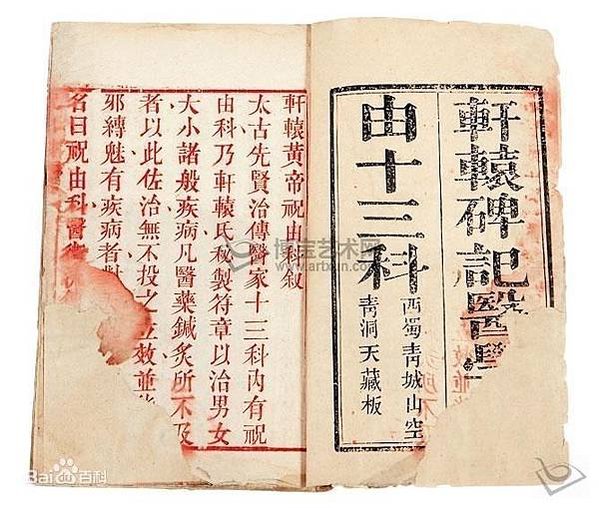 軒轅碑記醫
由十三科
西蜀青城山空
青洞天藏板
軒轅黃帝祝由科敘
太古先賢治傳醫家十三科內有祝
由科乃軒轅氏秘製符章以治男女
大小諸般疾病凡醫藥鍼灸所不及
者以此佐治無不投之立效並能
邪縛魅有疾病者對
名曰祝由科醫
博宝艺术网
www.artxun.com
Bai百科